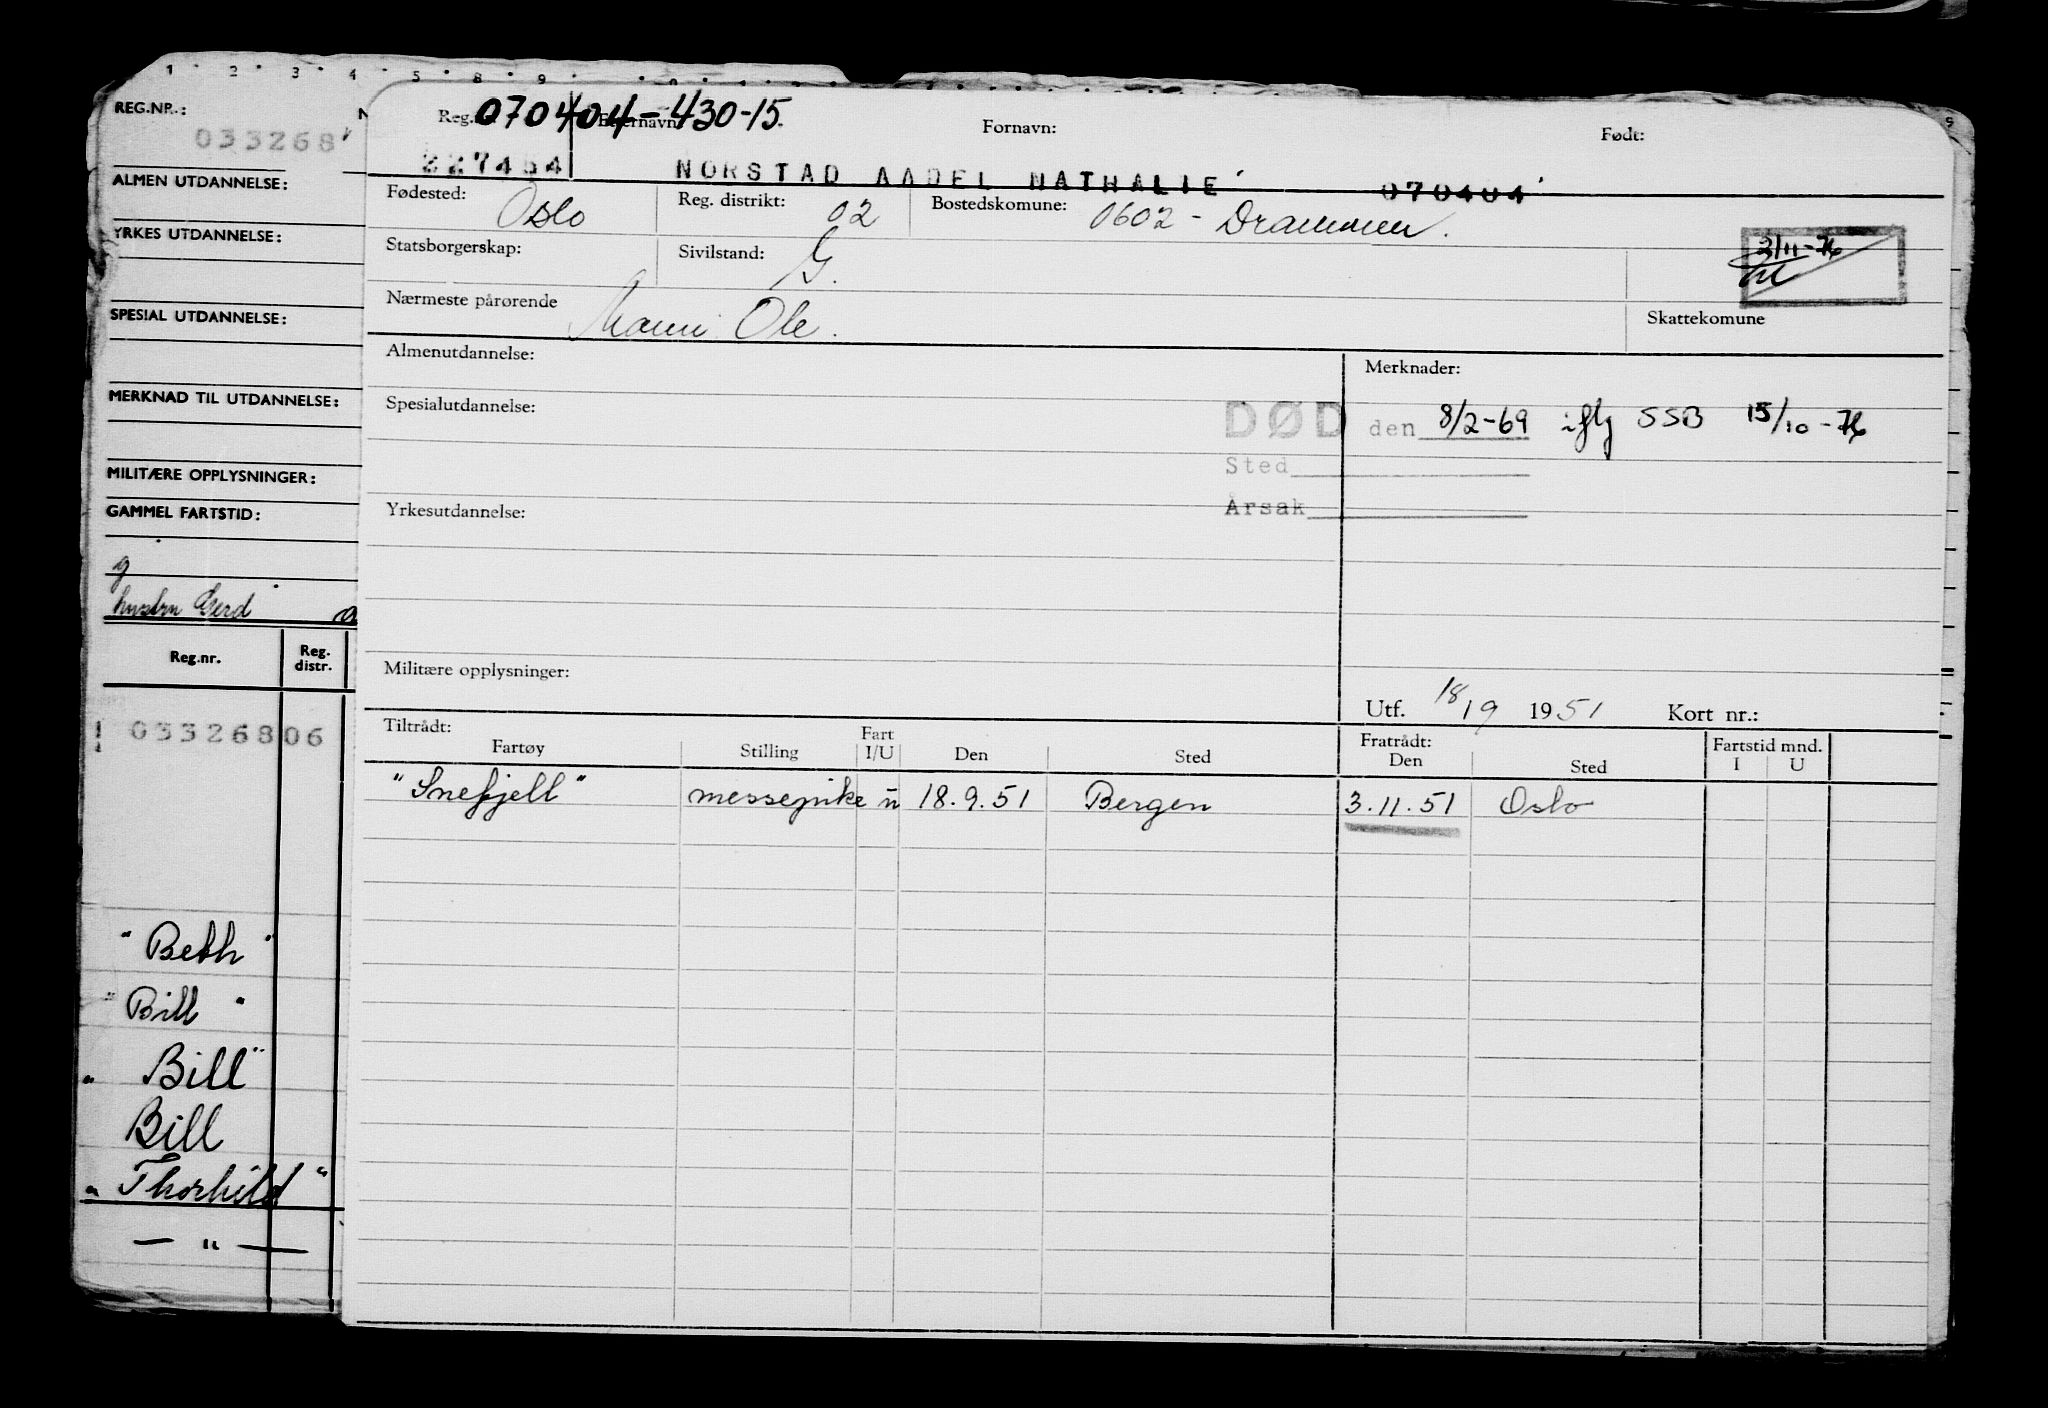 1 2 3 4 5 8 9
REG.NR.:
033268
ALMEN UTDANNELSE:
YRKES UTDANNELSE:
SPESIAL UTDANNELSE:
MERKNAD TIL UTDANNELSE:
MILITÆRE OPPLYSNINGER:
GAMMEL FARTSTID:
g
hustru Gerd
Reg.nr. Reg. distr.
03326806
"Beth"
"Bill"
"Bill"
Bill
"Thorhild"
— " —
070404-430-15
Fornavn: Født:
227454 NORSTAD AADEL NATHALIE 070404
Fødested: Oslo Reg. distrikt: 02 Bostedskomune: 0602 - Drammen.
Statsborgerskap: Sivilstand: G.
2/11-76
Nærmeste pårørende Mann: Ole.
Skattekomune
Almenutdannelse: Merknader:
Spesialutdannelse:
DØD den 8/2-69 iflg SSB 15/10-76
Sted
Årsak
Yrkesutdannelse:
Militære opplysninger:
Utf. 18/9 1951 Kort nr.:
Tiltrådt: Fratrådt: Fartstid mnd.
Fartøy Stilling Fart I/U Den Sted Den Sted I U
"Snefjell" messepike u 18.9.51 Bergen 3.11.51 Oslo